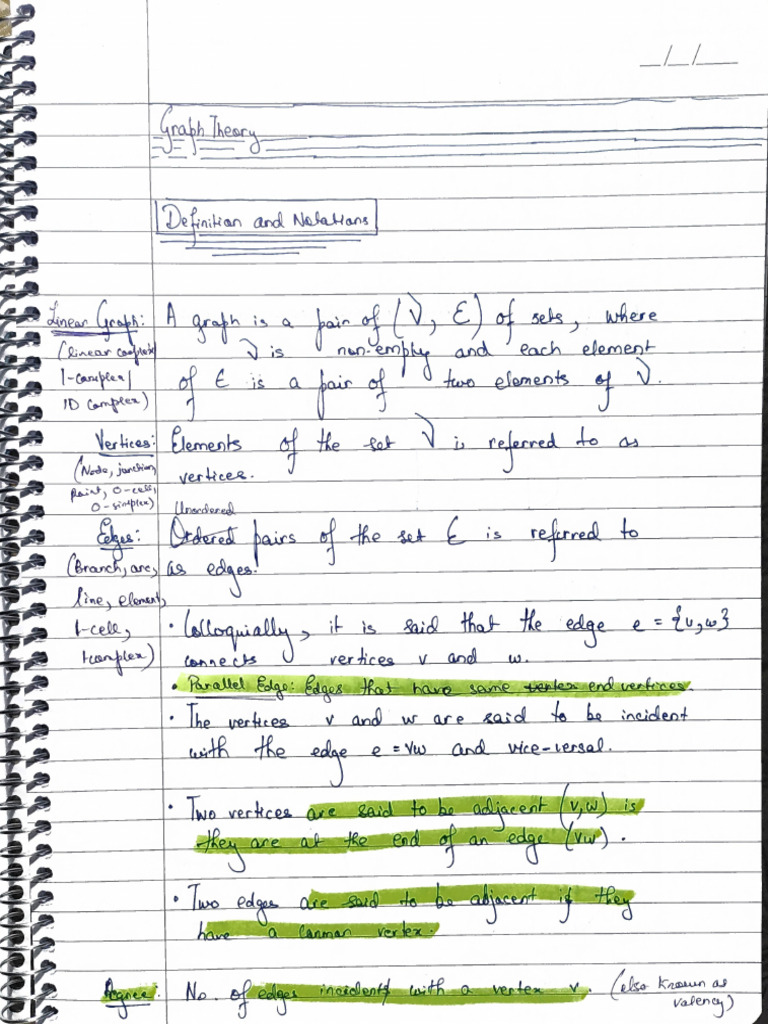 __/__/__
Graph Theory
Definition and Notations
Linear Graph: A graph is a pair of (V, E) of sets, where
(linear complex/ V is non-empty and each element
1-complex/ of E is a pair of two elements of V.
1D complex)
Vertices: Elements of the set V is referred to as
(Node, junction, vertices.
point, 0-cell,
0-simplex) Unordered
Edges: Ordered pairs of the set E is referred to
(Branch, arc, as edges.
line, element,
1-cell, • Colloquially, it is said that the edge e = {v,w}
1-complex) connects vertices v and w.
• Parallel Edge: Edges that have same vertex end vertices.
• The vertices v and w are said to be incident
with the edge e = vw and vice-versal.
• Two vertices are said to be adjacent (v,w) is
they are at the end of an edge (vw).
• Two edges are said to be adjacent if they
have a common vertex.
Degree: No. of edges incident with a vertex v. (also known as
valency)